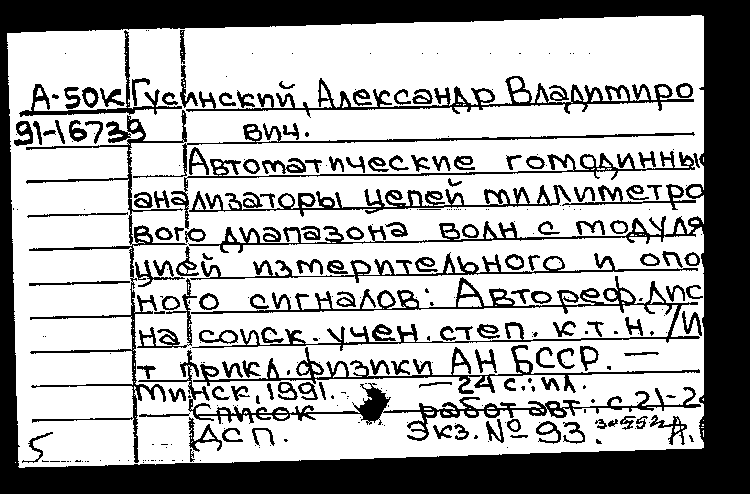 А-50К Гусинский, Александр Владимиро-
91-16739 вич.
Автоматические гомодинны
анализаторы цепей миллиметро
вого диапазона волн с модуля
цией измерительного и опо
ного сигналов: Автореф. дис
на соиск. учен. степ. к.т.н. /И
т прикл. физики АН БССР. —
Минск, 1991. — 24 с.: ил.
Список работ авт.: с. 21-2
5 ДСП. Экз. № 93.